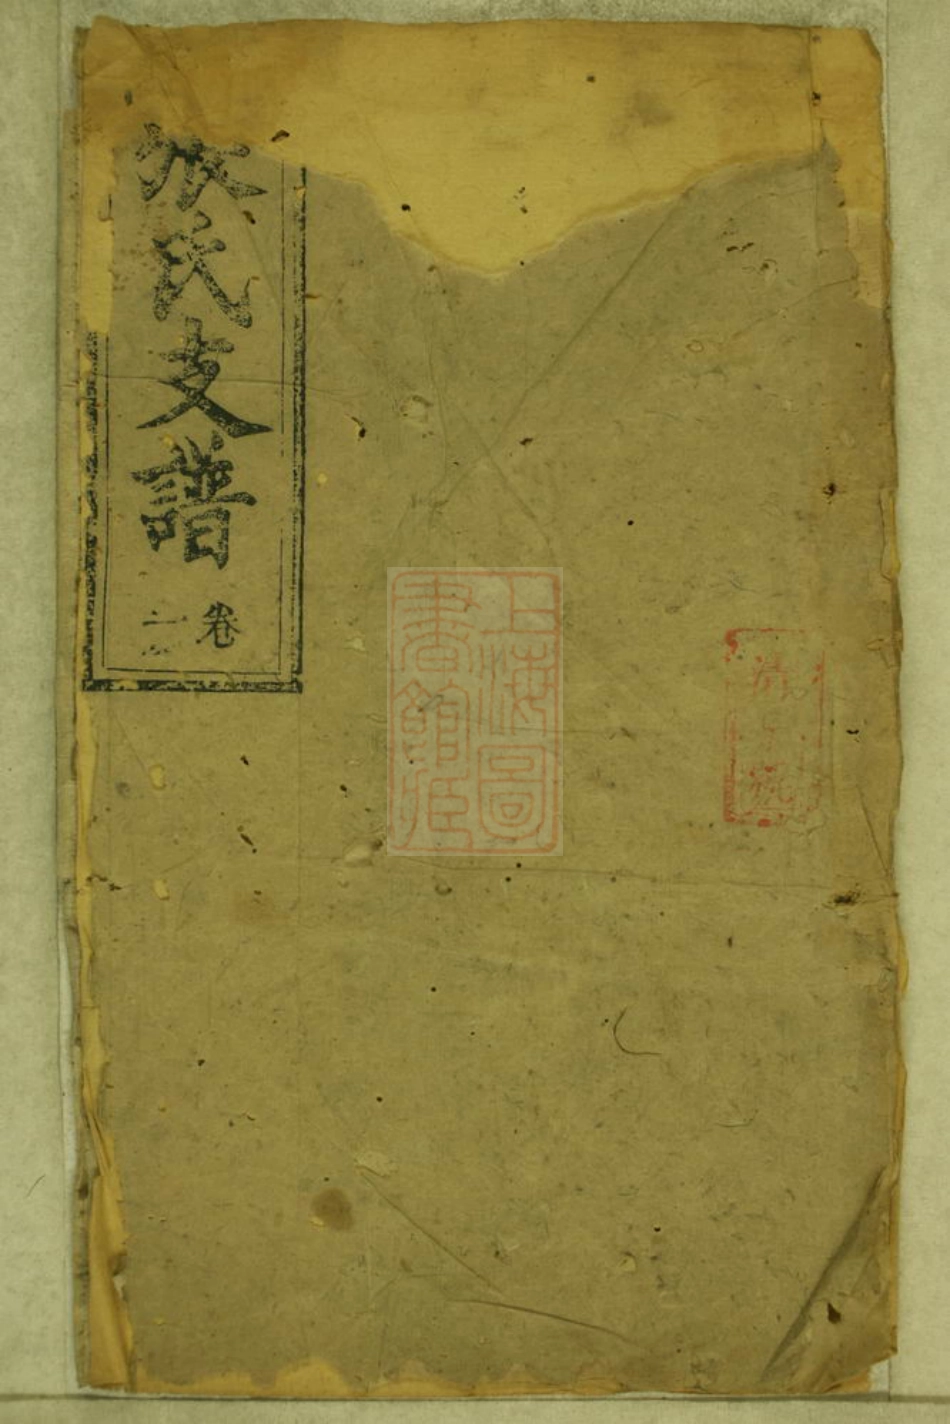 張氏支譜
卷
二
上海圖
書館藏